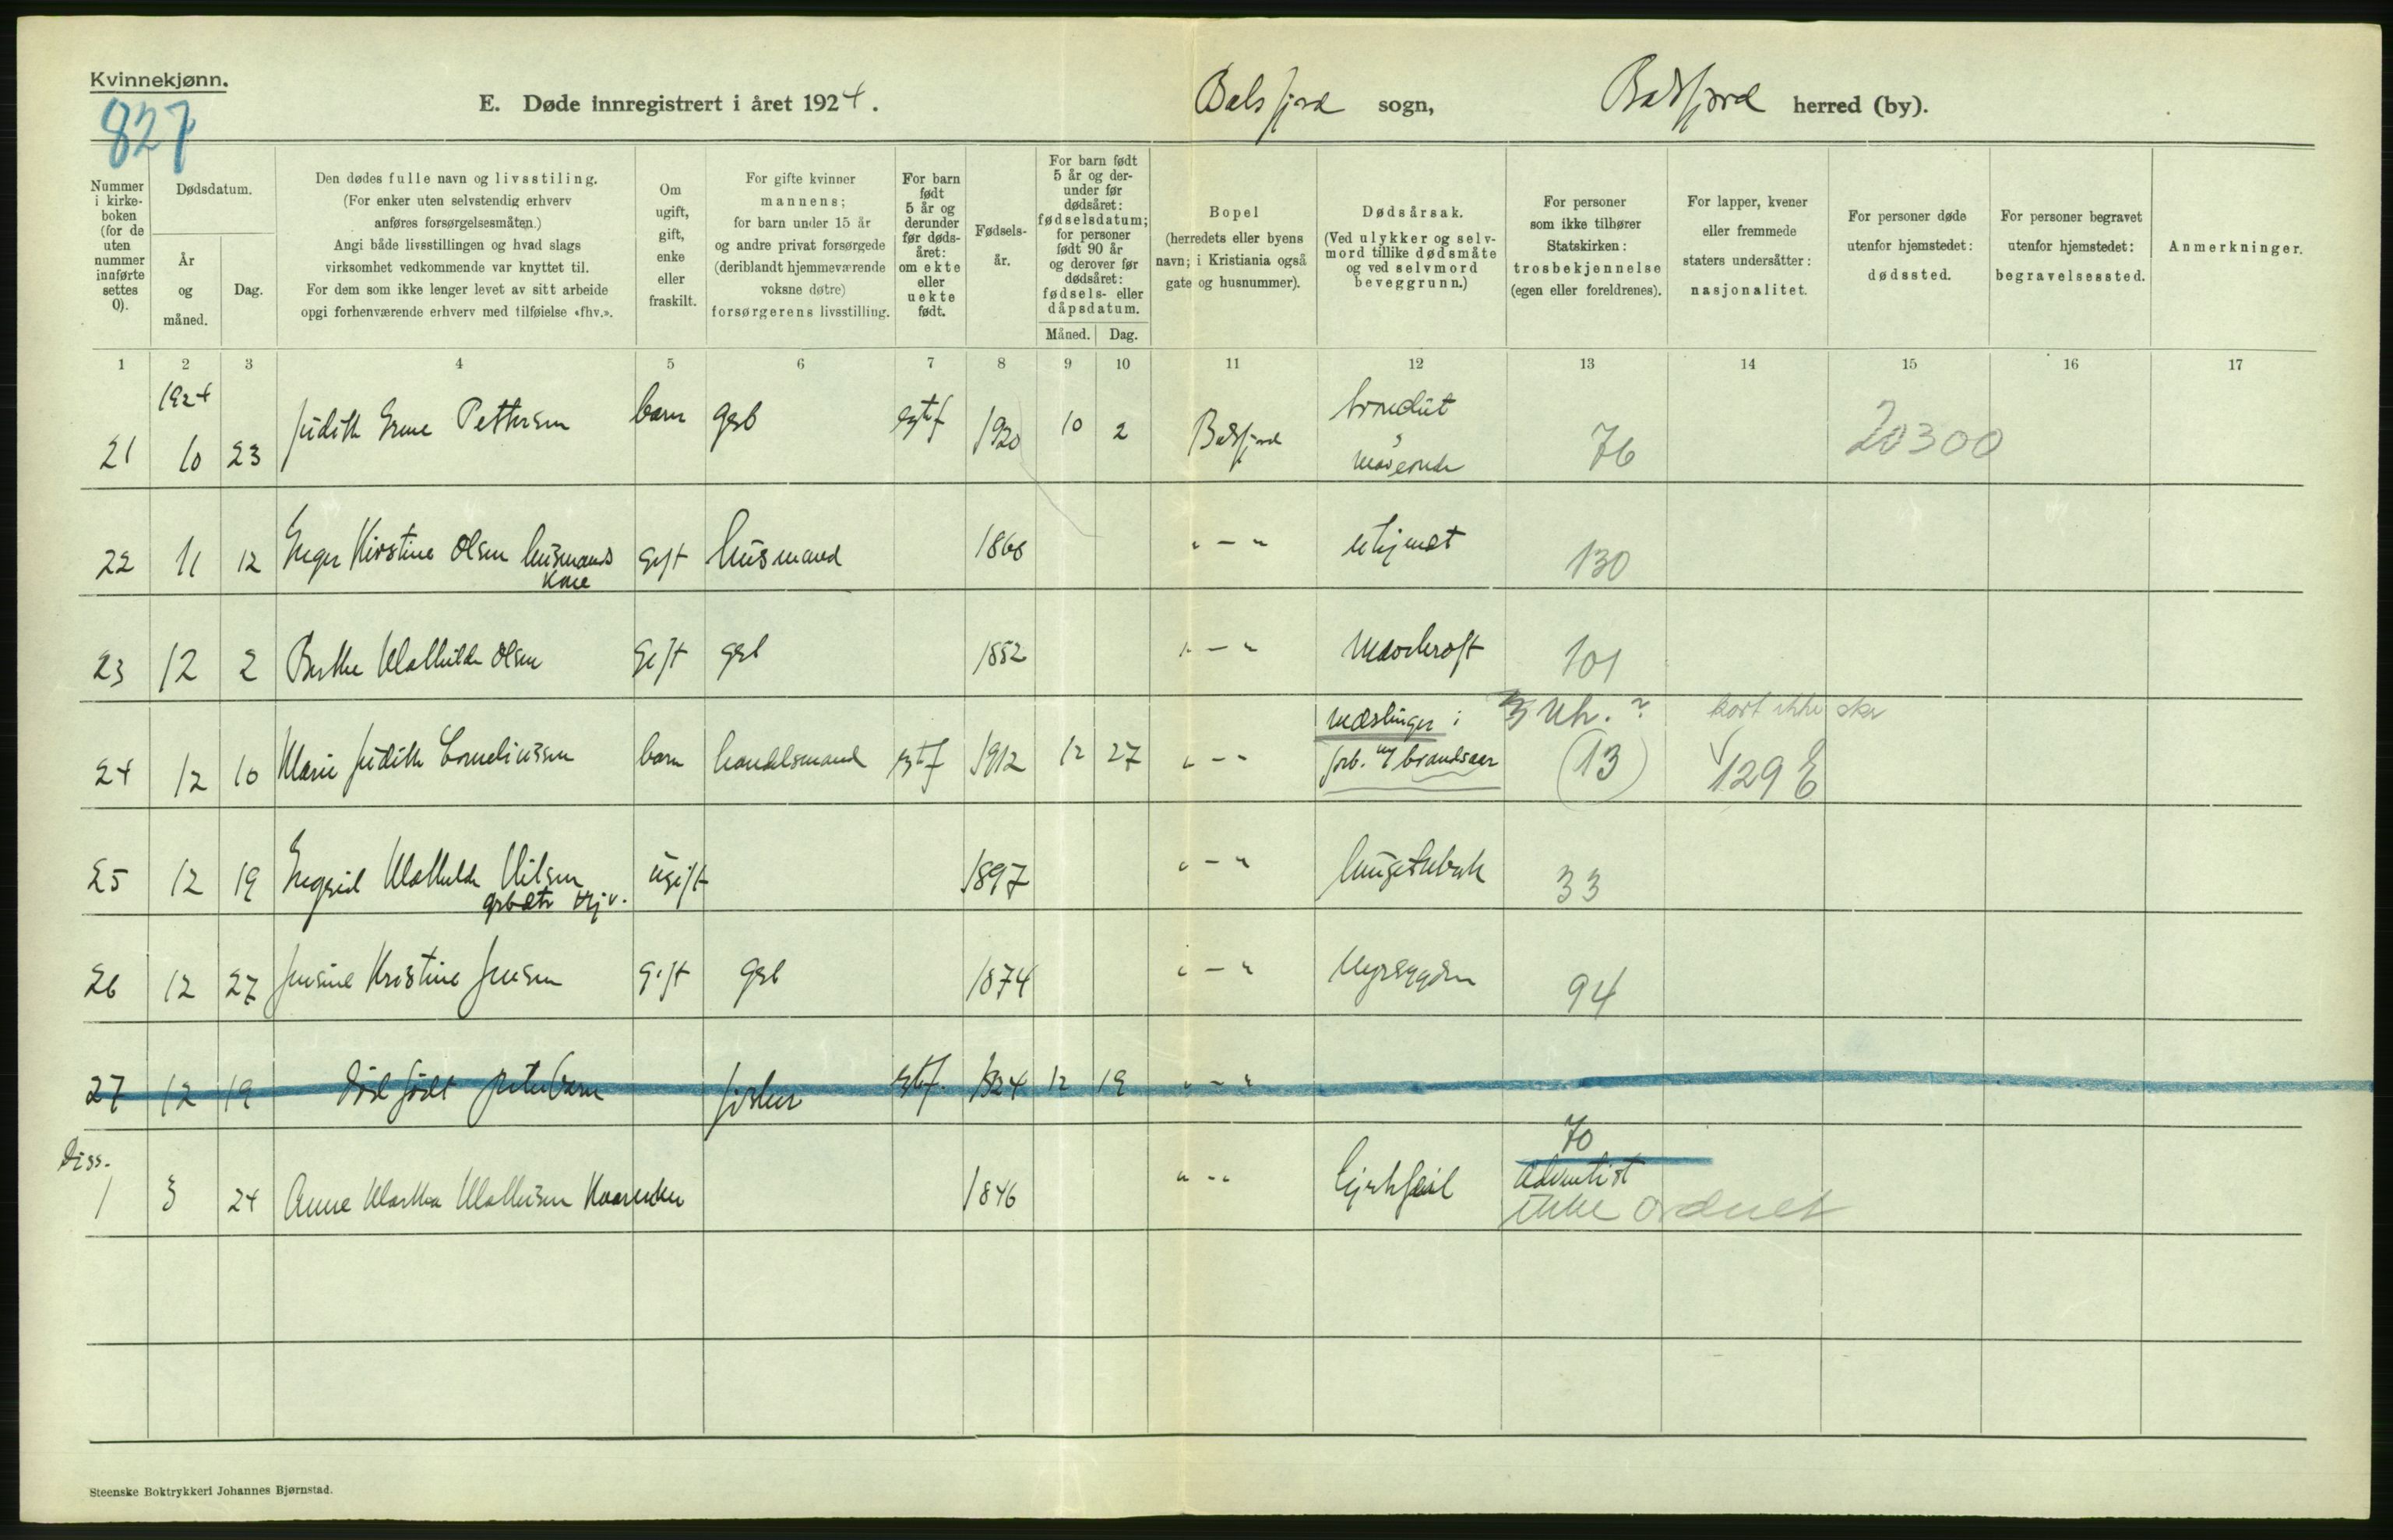 Kvinnekjønn.
827
E. Døde innregistrert i året 1924. Balsfjord sogn, Balsfjord herred (by).
Nummer i kirkeboken (for de uten nummer innførte settes 0).
Dødsdatum.
År og måned.
Dag.
Den dødes fulle navn og livsstiling.
(For enker uten selvstendig erhverv
anføres forsørgelsesmåten.)
Angi både livsstillingen og hvad slags
virksomhet vedkommende var knyttet til.
For dem som ikke lenger levet av sitt arbeide
opgi forhenværende erhverv med tilføielse «fhv.».
Om ugift, gift, enke eller fraskilt.
For gifte kvinner
mannens;
for barn under 15 år
og andre privat forsørgede
(deriblandt hjemmeværende
voksne døtre)
forsørgerens livsstilling.
For barn født 5 år og derunder før dødsåret: om ekte eller uekte født.
Fødselsår.
For barn født 5 år og derunder før dødsåret: fødselsdatum; for personer født 90 år og derover før dødsåret: fødsels- eller dåpsdatum.
Måned. Dag.
Bopel
(herredets eller byens
navn; i Kristiania også
gate og husnummer).
Dødsårsak.
(Ved ulykker og selvmord tillike dødsmåte og ved selvmord beveggrunn.)
For personer
som ikke tilhører
Statskirken:
trosbekjennelse
(egen eller foreldrenes).
For lapper, kvener
eller fremmede
staters undersåtter:
nasjonalitet.
For personer døde
utenfor hjemstedet:
dødssted.
For personer begravet
utenfor hjemstedet:
begravelsessted.
Anmerkninger.
1 2 3 4 5 6 7 8 9 10 11 12 13 14 15 16 17
1924
21 10 23 Judith Pettersen barn gsb ektf 1920 10 2 Balsfjord 76 20300
22 11 12 Inger Kirstine Olsen husmands
kone gift husmand 1868 " - " ukjendt 130
23 12 2 Berthe Mathilde Olsen gift gsb 1852 " - " Mavekræft 101
24 12 10 Marie Judith Corneliussen barn handelsmand ektf 1912 12 27 " - " Mæslinger i
forb. m/ brandsaar (13) 129 E
kort ikke
25 12 19 Ingrid Mathilde Nilsen ugift 1897 " - " 33
26 12 27 Jensine Kristine Jensen gift gsb 1874 " - " Nyresygdom 94
27 12 19 Dødfødt pikebarn fisker ektf. 1924 12 19 " - "
Diss.
1 3 24 Anne Martha Mathisen 1846 " - " hjertefeil 70
Adventist
ikke ordnet
Steenske Boktrykkeri Johannes Bjørnstad.